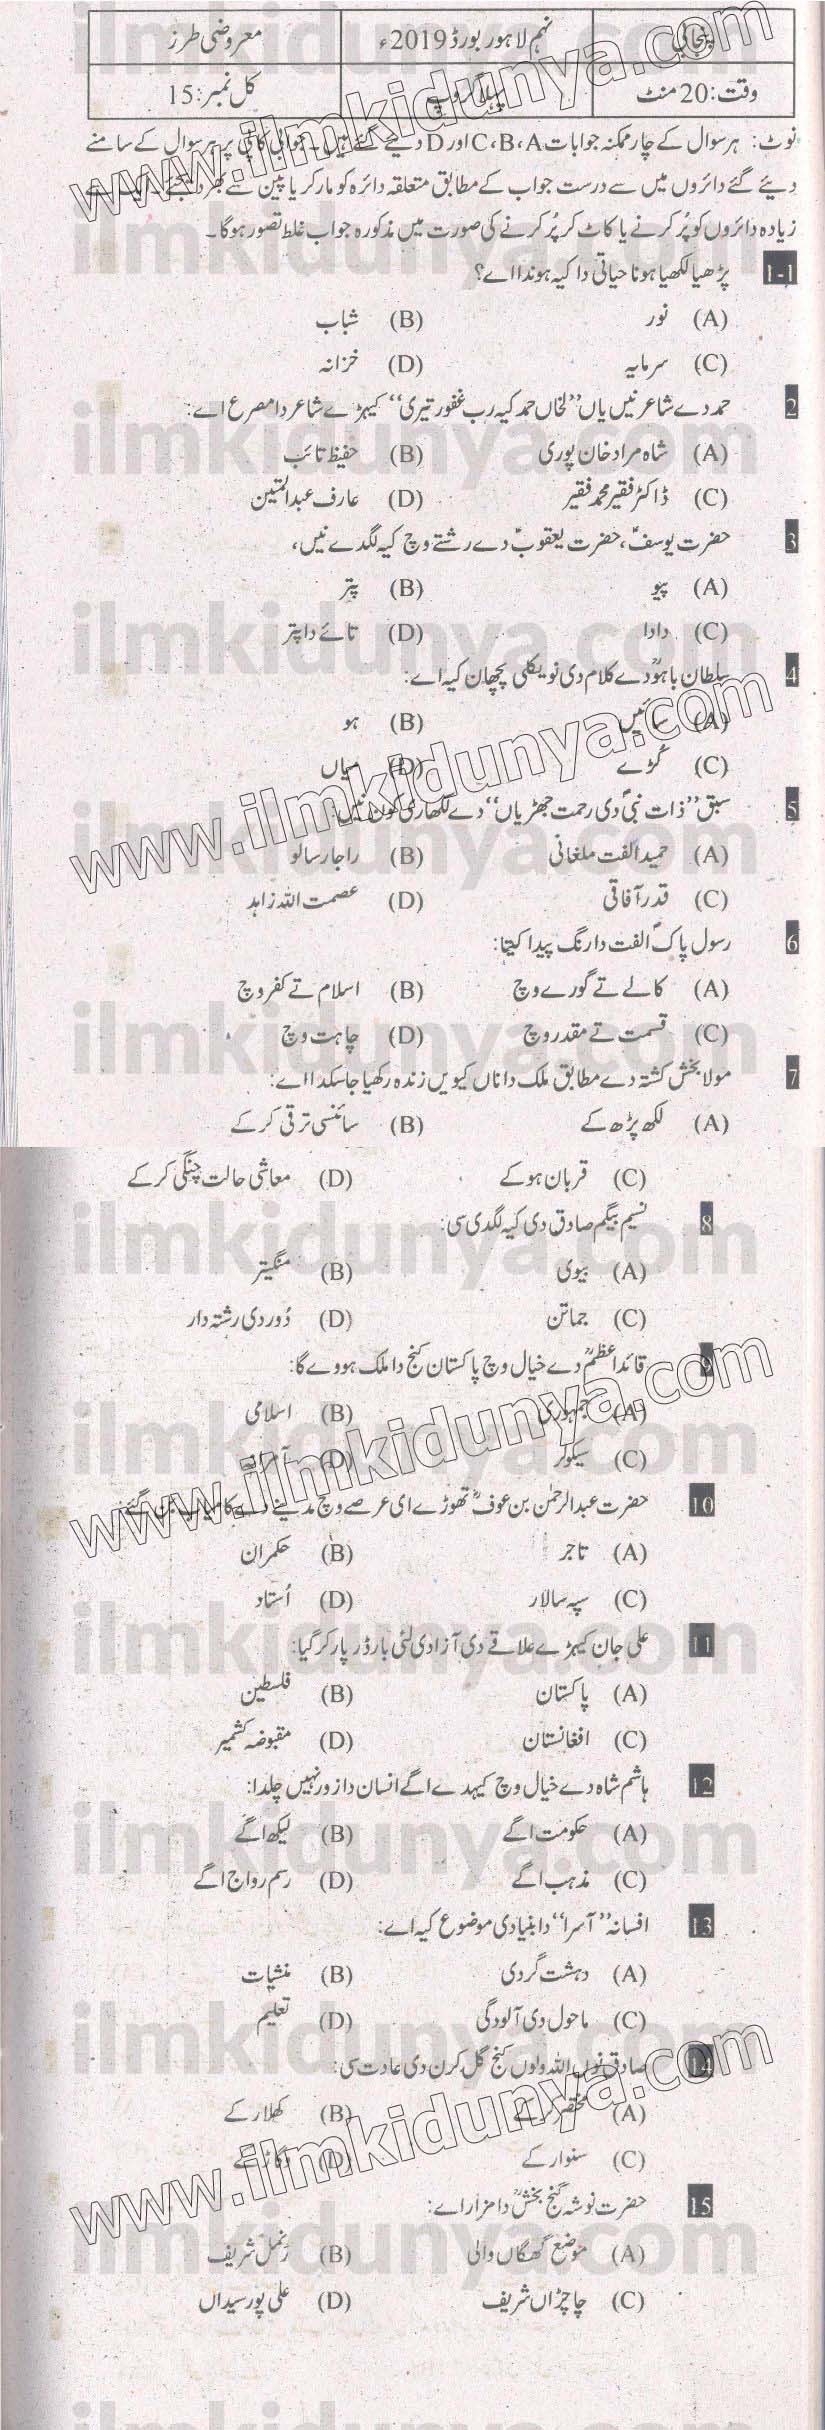 پنجابی	نہم لاہور بورڈ 2019ء	معروضی طرز
وقت: 20 منٹ	پہلا گروپ	کل نمبر: 15
نوٹ: ہر سوال کے چار ممکنہ جوابات C،B،A اور D دیئے گئے ہیں۔ جوابی کاپی پر ہر سوال کے سامنے
دیئے گئے دائروں میں سے درست جواب کے مطابق متعلقہ دائرہ کو مارکر یا پین سے بھر دیجئے۔
زیادہ دائروں کو پُر کرنے یا کاٹ کر پُر کرنے کی صورت میں مذکورہ جواب غلط تصور ہوگا۔
1-1 پڑھیا لکھیا ہونا حیاتی دا کیہ ہوندا اے؟
(A) نور (B) شباب
(C) سرمایہ (D) خزانہ
2 حمد دے شاعر نیں یاں ”لخاں حمد کیہ رب غفور تیری“ کیہڑے شاعر دا مصرع اے:
(A) شاہ مراد خان پوری (B) حفیظ تائب
(C) ڈاکٹر فقیر محمد فقیر (D) عارف عبدالمتین
3 حضرت یوسفؑ، حضرت یعقوبؑ دے رشتے وچ کیہ لگدے نیں،
(A) پیو (B) پتر
(C) دادا (D) تائے دا پتر
4 سلطان باہوؒ دے کلام دی نویکلی پچھان کیہ اے:
(A) سائیں (B) ہو
(C) کُڑے (D) میاں
5 سبق ”ذات نبیؐ دی رحمت جھڑیاں“ دے لکھاری کون نیں:
(A) حمید الفت ملغانی (B) راجا رسالو
(C) قدر آفاقی (D) عصمت اللہ زاہد
6 رسول پاکؐ الفت دا رنگ پیدا کیتا:
(A) کالے تے گورے وچ (B) اسلام تے کفر وچ
(C) قسمت تے مقدر وچ (D) چاہت وچ
7 مولا بخش کشتہ دے مطابق ملک دا ناں کیویں زندہ رکھیا جا سکدا اے:
(A) لکھ پڑھ کے (B) سائنسی ترقی کر کے
(C) قربان ہو کے (D) معاشی حالت چنگی کر کے
8 نسیم بیگم صادق دی کیہ لگدی سی:
(A) بیوی (B) منگیتر
(C) جماتن (D) دُور دی رشتہ دار
9 قائداعظمؒ دے خیال وچ پاکستان کنج دا ملک ہووے گا:
(A) جمہوری (B) اسلامی
(C) سیکولر (D)
10 حضرت عبدالرحمٰن بن عوفؓ تھوڑے ای عرصے وچ مدینے دے کامیاب بن گئے:
(A) تاجر (B) حکمران
(C) سپہ سالار (D) اُستاد
11 علی جان کیہڑے علاقے دی آزادی لئی بارڈر پار کر گیا:
(A) پاکستان (B) فلسطین
(C) افغانستان (D) مقبوضہ کشمیر
12 ہاشم شاہ دے خیال وچ کیہدے اگے انسان دا زور نہیں چلدا:
(A) حکومت اگے (B) لیکھ اگے
(C) مذہب اگے (D) رسم رواج اگے
13 افسانہ ”آسرا“ دا بنیادی موضوع کیہ اے:
(A) دہشت گردی (B) منشیات
(C) ماحول دی آلودگی (D) تعلیم
14 صادق نوں اللہ ولوں کنج گل کرن دی عادت سی:
(A) مختصر کر کے (B) کھلار کے
(C) سنوار کے (D) وگاڑ کے
15 حضرت نوشہ گنج بخشؒ دا مزار اے:
(A) موضع گھگاں والی (B) رنمل شریف
(C) چاچڑاں شریف (D) علی پور سیداں
www.ilmkidunya.com